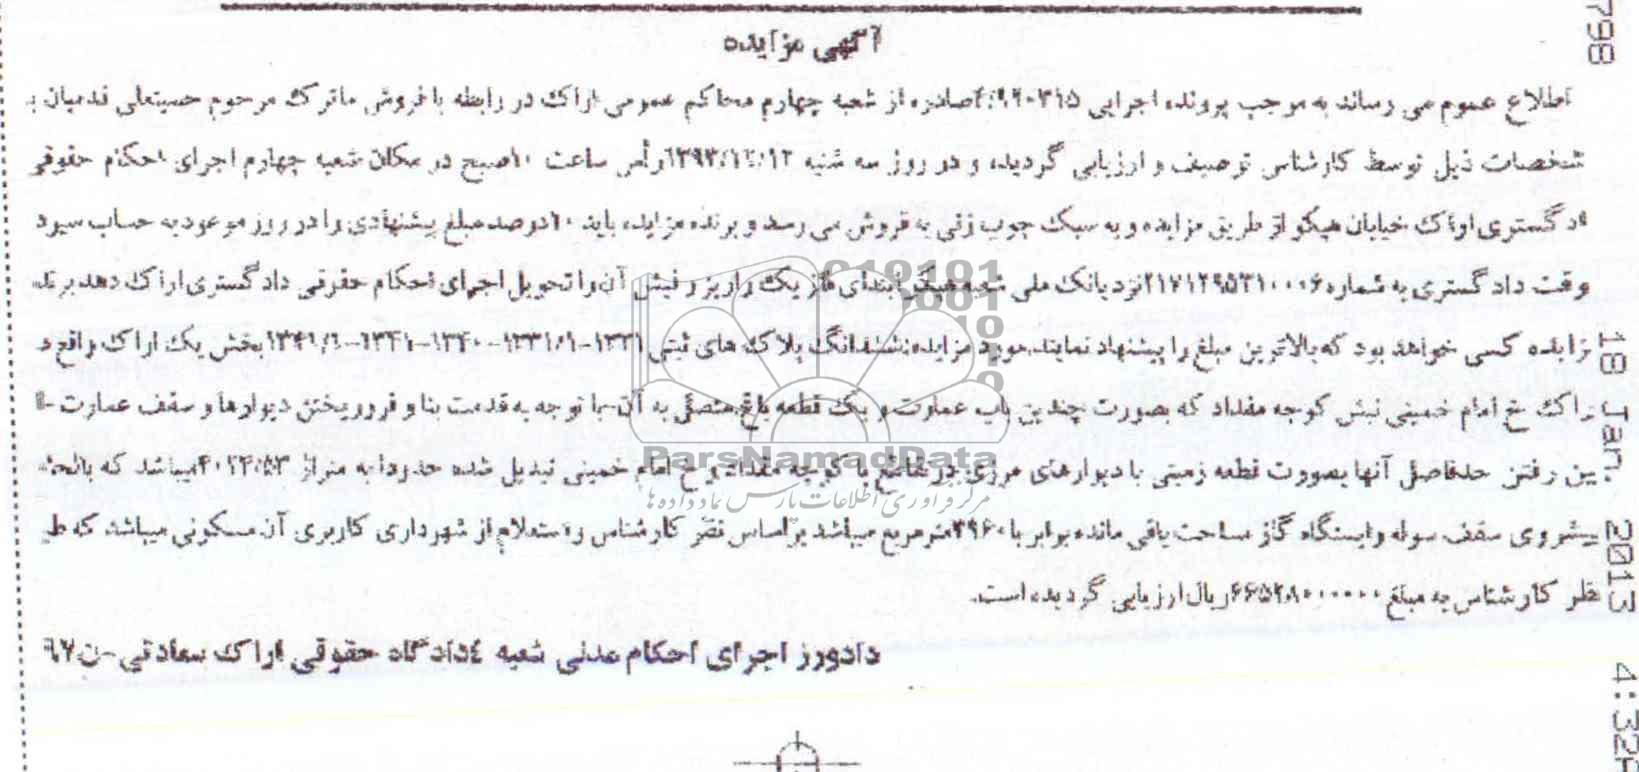 آگهی مزایده
اطلاع عموم می رساند به موجب پرونده اجرایی صادره از شعبه چهارم محاکم عمومی اراک در رابطه با فروش ماترک مرحوم حسینعلی قدمیان
شخصات ذیل توسط کارشناس توصیف و ارزیابی گردیده و در روز سه شنبه رأس ساعت ۱۰صبح در مکان شعبه چهارم اجرای احکام حقوقی
دگستری اراک خیابان هپکو از طریق مزایده و به سبک چوب زنی به فروش می رسد و برنده مزایده باید ۱۰درصد مبلغ پیشنهادی را در روز موعود به حساب سپرد
وقت دادگستری به شماره ۲۱۷۱۲۹۵۳۱۰۰۰۶نزد بانک ملی شعبه هپکو ابتدای فاز یک واریز و فیش آن را تحویل اجرای احکام حقوقی دادگستری اراک دهد برنده
زایده کسی خواهد بود که بالاترین مبلغ را پیشنهاد نمایند.مورد مزایده:ششدانگ پلاک های ثبتی بخش یک اراک واقع د
راک خ امام خمینی نبش کوچه مقداد که بصورت چندین باب عمارت و یک قطعه باغ متصل به آن-با توجه به قدمت بنا و فروریختن دیوارها و سقف عمارت
بین رفتن حدفاصل آنها بصورت قطعه زمینی با دیوارهای مرزی در تقاطع با کوچه مقداد و خ امام خمینی تبدیل شده حدودا به متراژ میباشد که
پیشروی سقف سوله وایستگاه گاز مساحت باقی مانده برابر با ۳۹۶۰مترمربع میباشد براساس نظر کارشناس و استعلام از شهرداری کاربری آن مسکونی میباشد که طی
ظر کارشناس به مبلغ ریال ارزیابی گردیده است.
دادورز اجرای احکام مدنی شعبه ٤دادگاه حقوقی اراک سعادتی-ن٦٧
ParsNamadData
مرکز فرآوری اطلاعات پارس نماد داده ها
798
18 Jan. 2013 4:32P